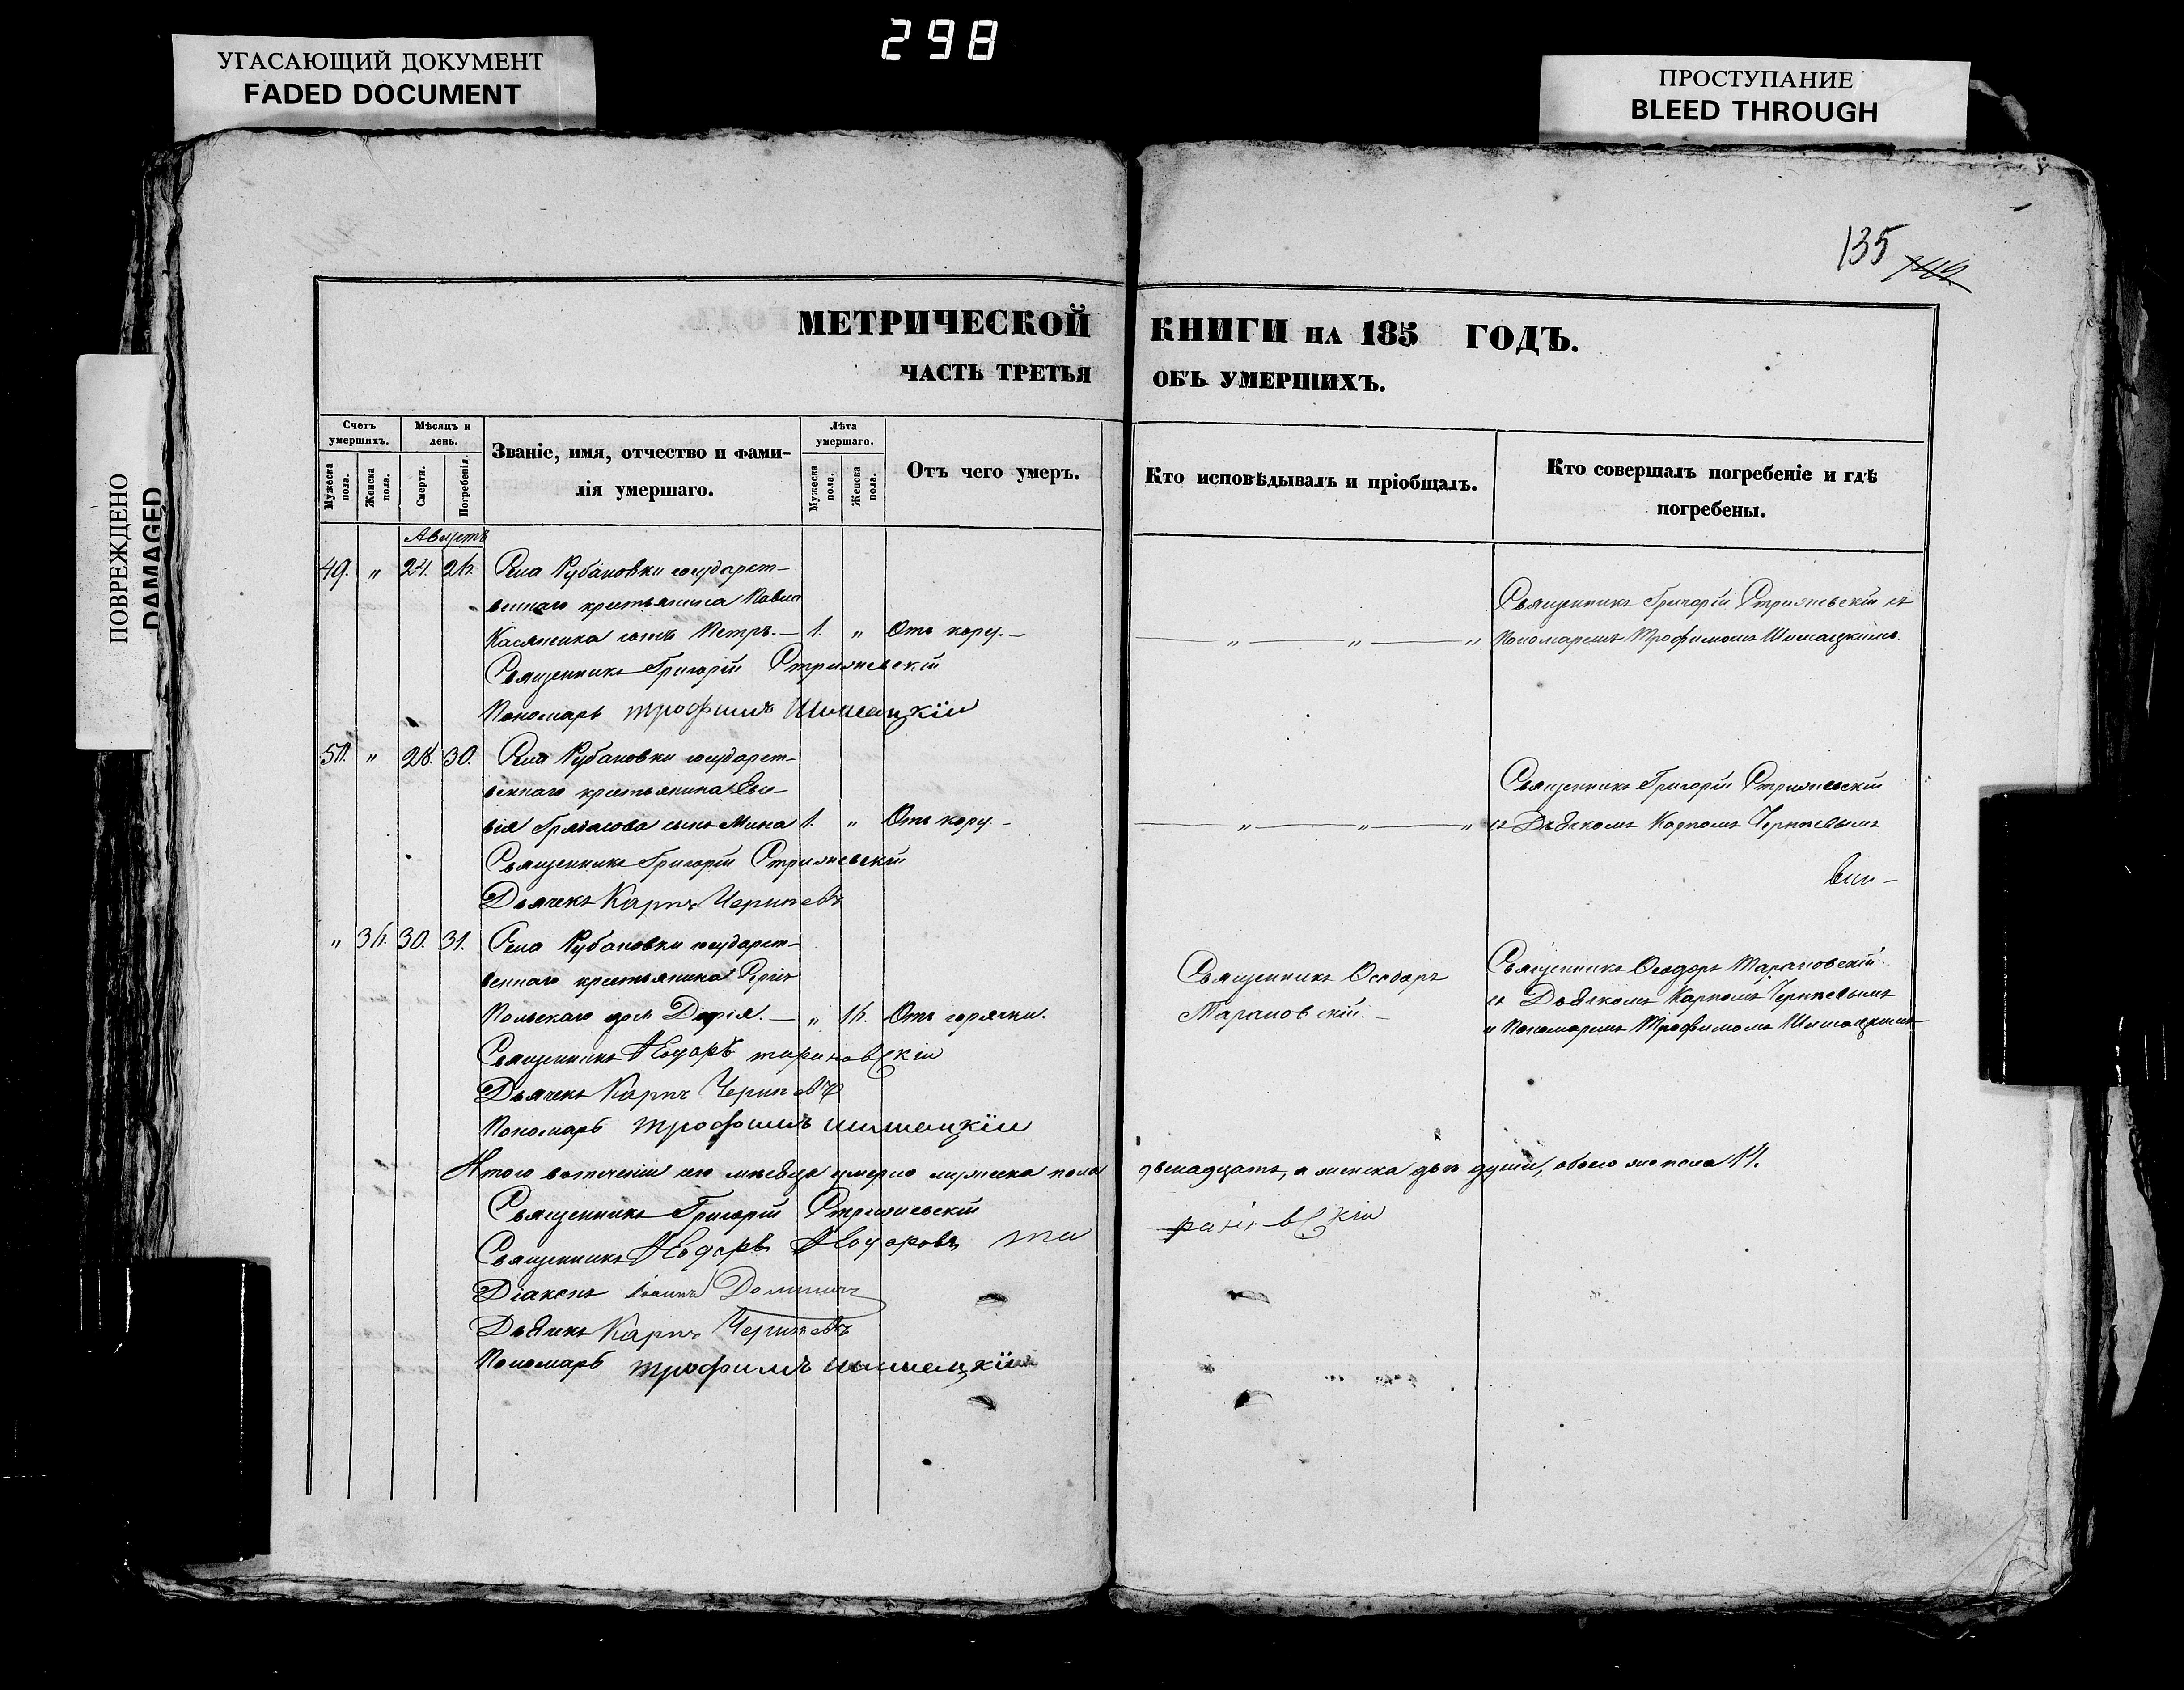 298
УГАСАЮЩИЙ ДОКУМЕНТ
FADED DOCUMENT
ПРОСТУПАНИЕ
BLEED THROUGH
ПОВРЕЖДЕНО
DAMAGED
135
МЕТРИЧЕСКОЙ КНИГИ НА 185 ГОДЪ.
ЧАСТЬ ТРЕТЬЯ ОБЪ УМЕРШИХЪ.
Счетъ умершихъ.
Мужеска пола.
Женска пола.
Мѣсяцъ и день.
Смерти.
Погребенія.
Званіе, имя, отчество и фами-
лія умершаго.
Лѣта умершаго.
Мужеска пола.
Женска пола.
Отъ чего умеръ.
Кто исповѣдывалъ и пріобщалъ.
Кто совершалъ погребеніе и гдѣ
погребены.
Августъ
49. " 24. 26. Села Рубановки государст-
веннаго крестьянина Павла
Касяненка сынъ Петръ. — 1. " Отъ кору. —
— " — " — "
Священникъ Григорій Стрижевскій съ
Пономаремъ Трофимомъ Шишацкимъ.
Священникъ Григорій Стрижевскій
Пономарь Трофимъ Шишацкій
50. " 28. 30. Села Рубановки государст-
веннаго крестьянина
сынъ Мина 1. " Отъ кору. —
— " — " — "
Священникъ Григорій Стрижевскій
съ Дьячкомъ Карпомъ Чернѣевымъ
Священникъ Григорій Стрижевскій
Дьячекъ Карпъ Чернѣевъ
" 36. 30. 31. Села Рубановки государст-
веннаго крестьянина Сергія
Польскаго дочь Дарія. — " 16. Отъ горячки.
Священникъ Ѳеодоръ
Тарановскій. —
Священникъ Ѳеодоръ Тарановскій
съ Дьячкомъ Карпомъ Чернѣевымъ
и Пономаремъ Трофимомъ Шишацкимъ
Священникъ Ѳеодоръ Тарановскій
Дьячекъ Карпъ Чернѣевъ
Пономарь Трофимъ Шишацкій
Итого въ теченіи сего мѣсяца умерло мужеска пола двенадцать, а женска двѣ души, обоего же пола 14.
Священникъ Григорій Стрижевскій
Священникъ Ѳеодоръ Ѳеодоровъ Тарановскій
Діаконъ Іоаннъ
Дьячекъ Карпъ Чернѣевъ
Пономарь Трофимъ Шишацкій